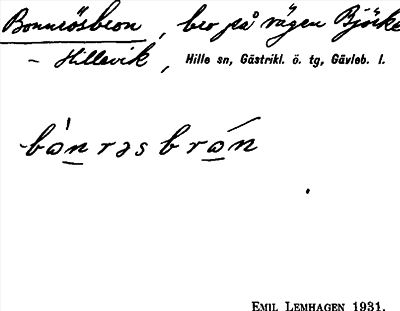 Bonnrösbron, bro på vägen Björke
- Hillevik, Hille sn, Gästrikl. ö. tg, Gävleb. l.
bònrəsbrón
EMIL LEMHAGEN 1931.